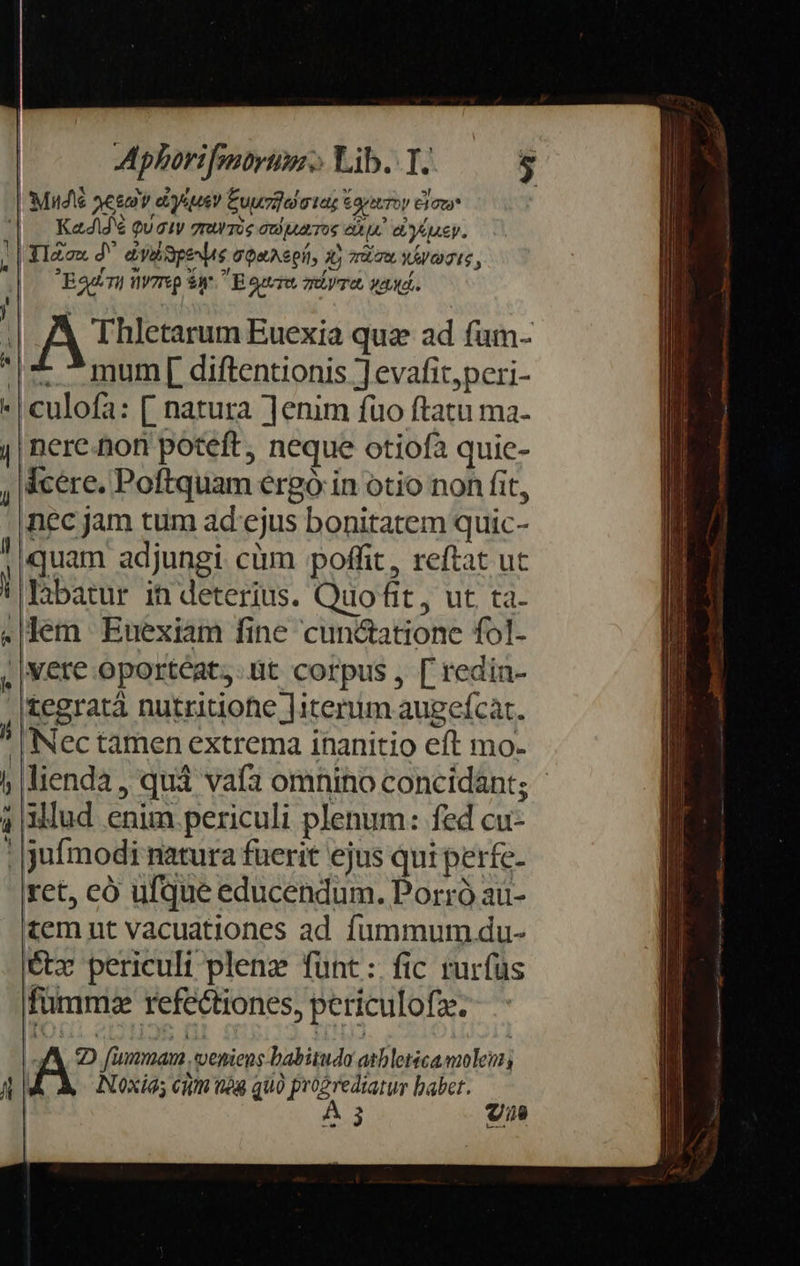 Aphorismorum Lib. I. 5
Μηδὲ
Καδδὲ φύσιν παντὸς σώματος ἀγέμεν.
Πᾶσα δ' σφαλερὴ, καὶ πᾶσα κένωσις,
πάντα κακά.
AThletarum Euexia quæ ad ſum-
mum [ diſtentionis ] evaſit, peri-
culoſa: [ natura ] enim ſuo ſtatu ma-
nere non poteſt, neque otioſa quie-
ſcere. Poſtquam ergò in otio non ſit,
nec jam tum ad ejus bonitatem quic-
quam adjungi cùm poſſit, reſtat ut
labatur in deterius. Quo fit, ut ta-
lem Euexiam ſine cunctatione ſol-
vere oporteat, ut corpus, [ redin-
tegratâ nutritione ] iterum augeſcat.
Nec tamen extrema inanitio eſt mo-
lienda, quâ vaſa omnino concidant;
illud enim periculi plenum: ſed cu-
juſmodi natura fuerit ejus qui perfe-
ret, eò uſque educendum. Porrò au-
tem ut vacuationes ad ſummum du-
ctæ periculi plenæ ſunt: ſic rurſus
ſummæ refectiones, periculoſæ.
AD ſummam veniens habitudo athletica molem,
Noxia; cùm non quò progrediatur habet.
A 3 Una